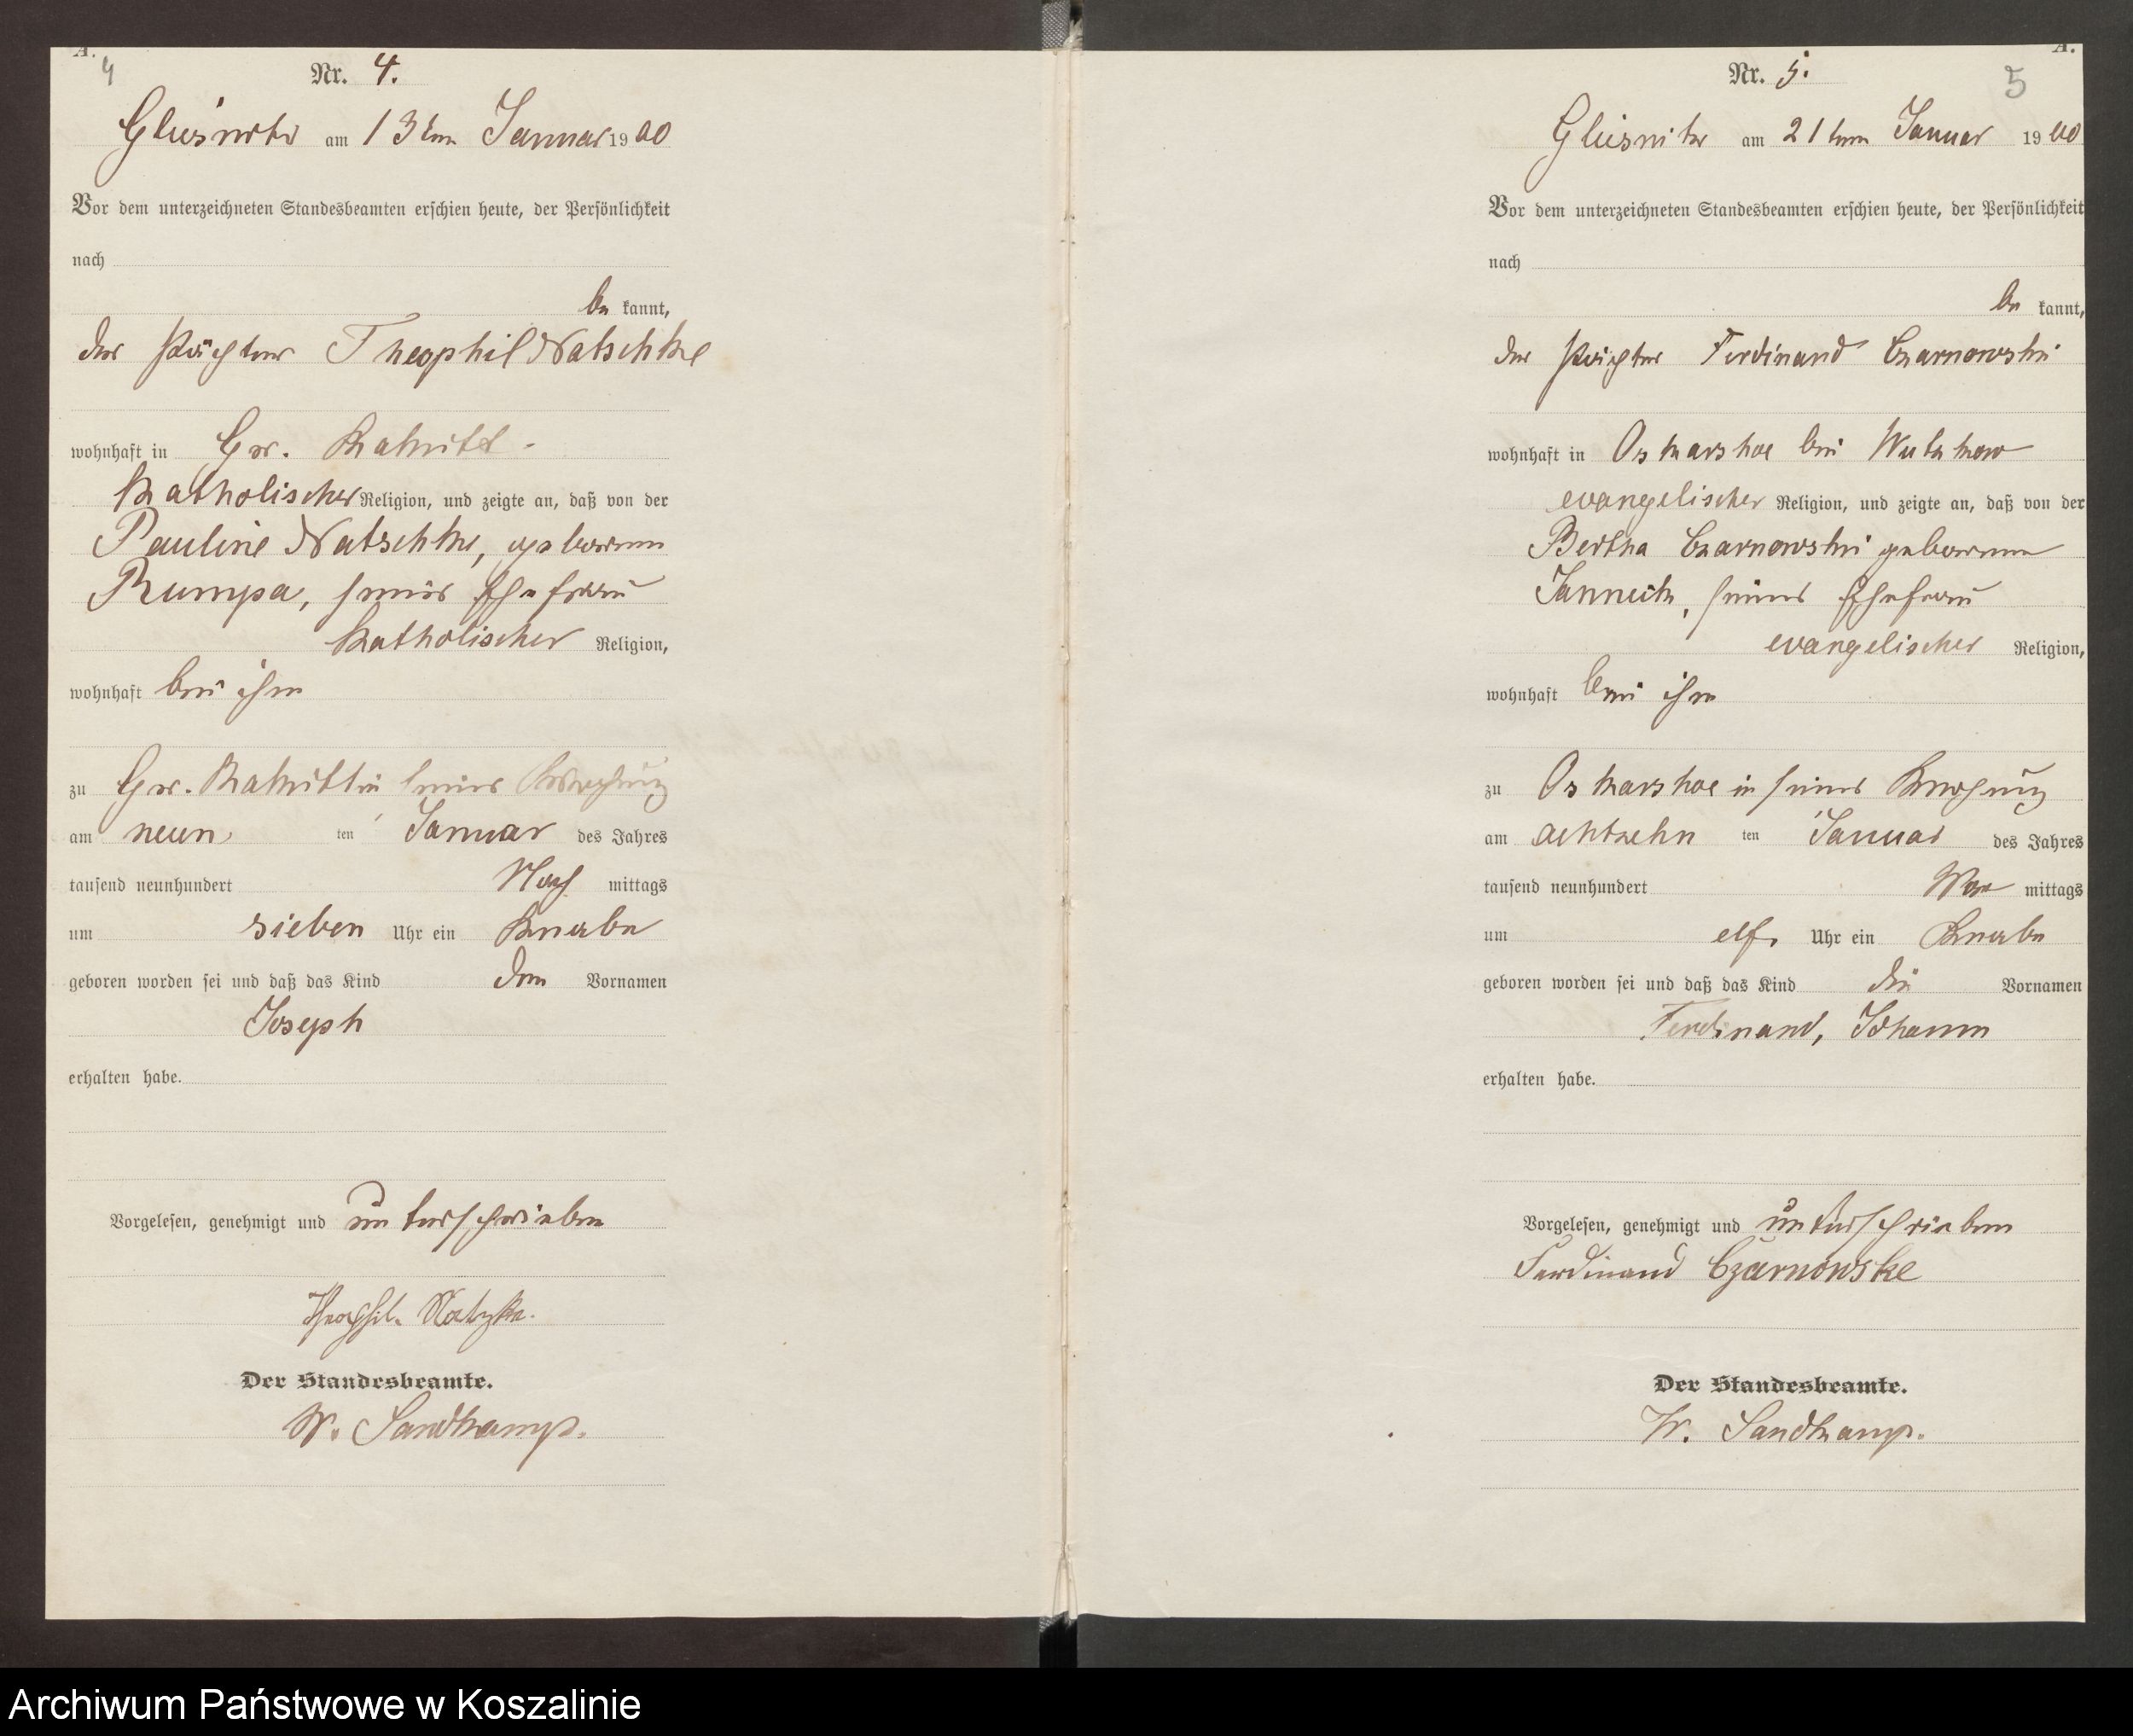 A.
4
Nr. 4.
Gliesnitz am 13ten Januar 1900
Vor dem unterzeichneten Standesbeamten erschien heute, der Persönlichkeit
nach
be kannt,
der Pächter Theophil Natschke
wohnhaft in Gr. Rakitt
katholischer Religion, und zeigte an, daß von der
Pauline Natschke, geborenen
Rumpa, seiner Ehefrau
katholischer Religion,
wohnhaft bei ihm
zu Gr. Rakitt in seiner Wohnung
am neun ten Januar des Jahres
tausend neunhundert Nach mittags
um sieben Uhr ein Knabe
geboren worden sei und daß das Kind den Vornamen
Joseph
erhalten habe.
Vorgelesen, genehmigt und unterschrieben
Theophil Natzke.
Der Standesbeamte.
W. Sandkamp.
A.
5
Nr. 5.
Gliesnitz am 21ten Januar 1900
Vor dem unterzeichneten Standesbeamten erschien heute, der Persönlichkeit
nach
be kannt,
der Pächter Ferdinand Czarnowski
wohnhaft in Oskarshoe bei Wutzkow
evangelischer Religion, und zeigte an, daß von der
Bertha Czarnowski geborenen
seiner Ehefrau
evangelischer Religion,
wohnhaft bei ihm
zu Oskarshoe in seiner Wohnung
am achtzehn ten Januar des Jahres
tausend neunhundert Vor mittags
um elf Uhr ein Knabe
geboren worden sei und daß das Kind die Vornamen
Ferdinand, Johann
erhalten habe.
Vorgelesen, genehmigt und unterschrieben
Ferdinand Czarnowske
Der Standesbeamte.
W. Sandkamp.
Archiwum Państwowe w Koszalinie